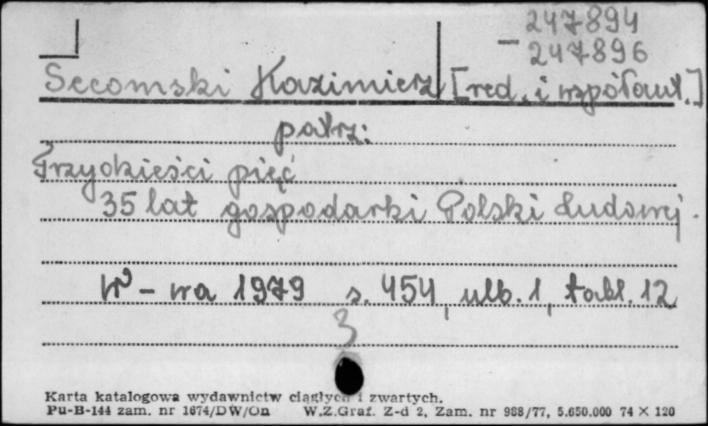 247894
- 247896
Secomski Kazimierz [red. i współaut.]
patrz:
Trzydzieści pięć
35 lat gospodarki Polski Ludowej.
W-wa 1979 s. 454, ulb. 1, tabl. 12
3
Karta katalogowa wydawnictw ciągłych i zwartych.
Pu-B-144 zam. nr 1674/DW/On W.Z.Graf. Z-d 2, Zam. nr 988/77, 5.650.000 74 X 120